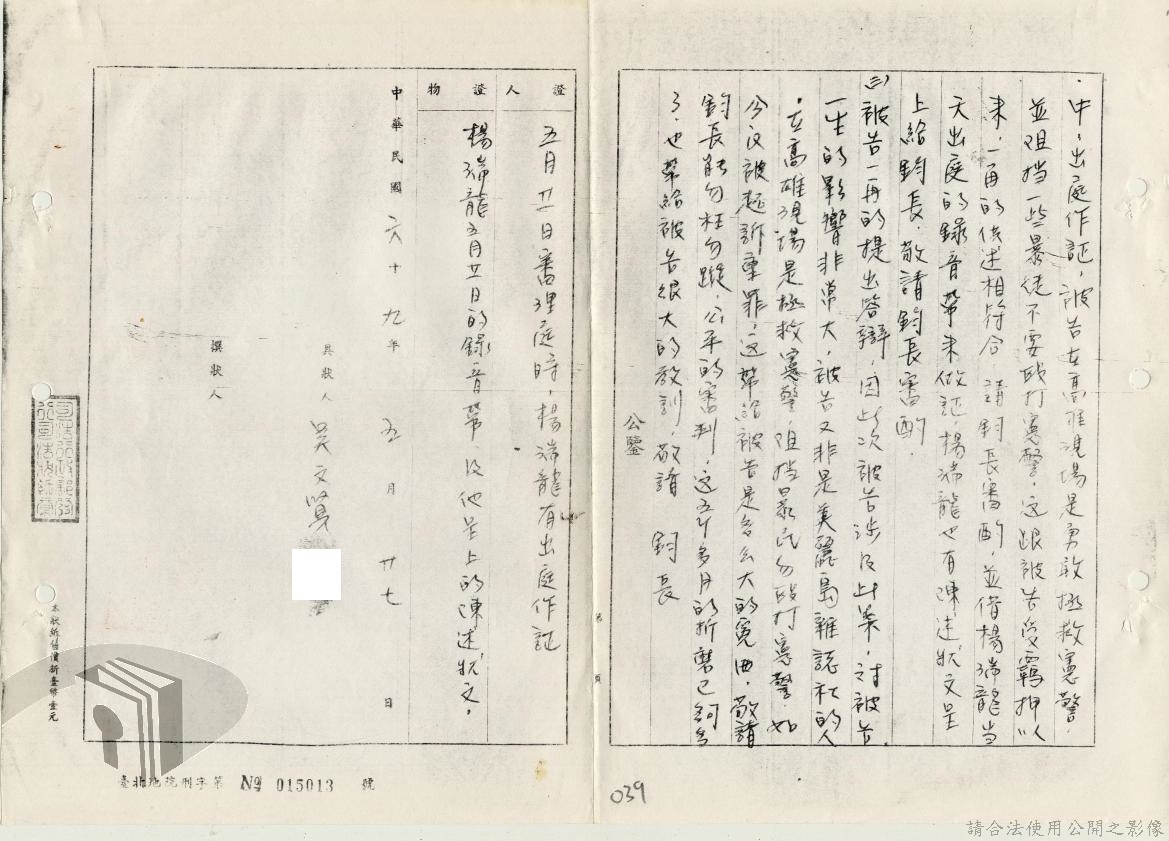 中，出庭作証，被告在高雄現場是勇敢拯救憲警，
並阻挡一些暴徒不要毆打憲警，这跟被告受羈押以
來，一再的供述相符合，請鈞長審酌，並借楊瑞龍当
天出庭的錄音帶來做証，楊瑞龍也有陳述狀文呈
上給鈞長，敬請鈞長審酌。
(三)被告一再的提出答辯，因此次被告涉及此案，对被告
一生的影響非常大，被告又非是美麗島雜誌社的人
，在高雄現場是拯救憲警，阻挡暴民勿毆打憲警，如
今又被起訴重罪，这帶給被告是多么大的冤曲，敬請
鈞長能勿枉勿縱，公平的審判，这五个多月的折磨已夠多
了，也帶給被告很大的教訓，敬請 鈞長
公鑒
第 頁
證人
五月廿一日審理庭時，楊瑞龍有出庭作証
證物
楊瑞龍五月廿一日的錄音帶，及他呈上的陳述狀文。
中華民國六十九年 五 月 廿七 日
具狀人 吳文賢
撰狀人
本狀紙估價新臺幣壹元
臺北地院刑字第 № 015013 號
039
請合法使用公開之影像